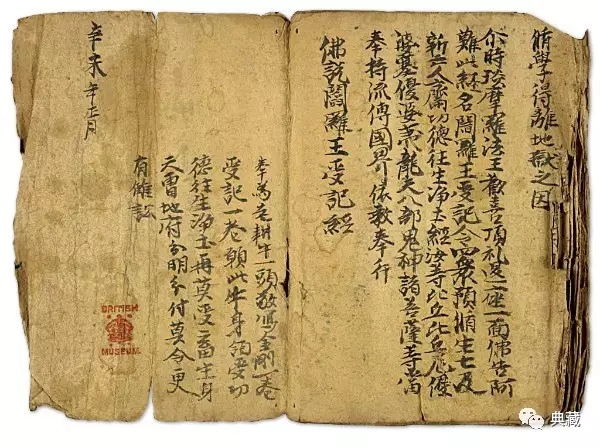 修學得離地獄之因
尒時琰摩羅法王歡喜頂礼退座一面佛告阿
難此經名閻羅王受記令四衆預修生七及
新亡人齋功德往生淨土經汝等比丘比丘尼優
婆塞優婆夷龍天八部鬼神諸菩薩等當
奉持流傳國界依教奉行
佛説閻羅王受記經
奉為老耕牛一頭敬寫金剛一卷
受記一卷願此牛身領受功
德往生淨土再莫受畜生身
天曹地府分明分付莫令更
有讎訟
辛未年正月
BRITISH
MUSEUM
典藏